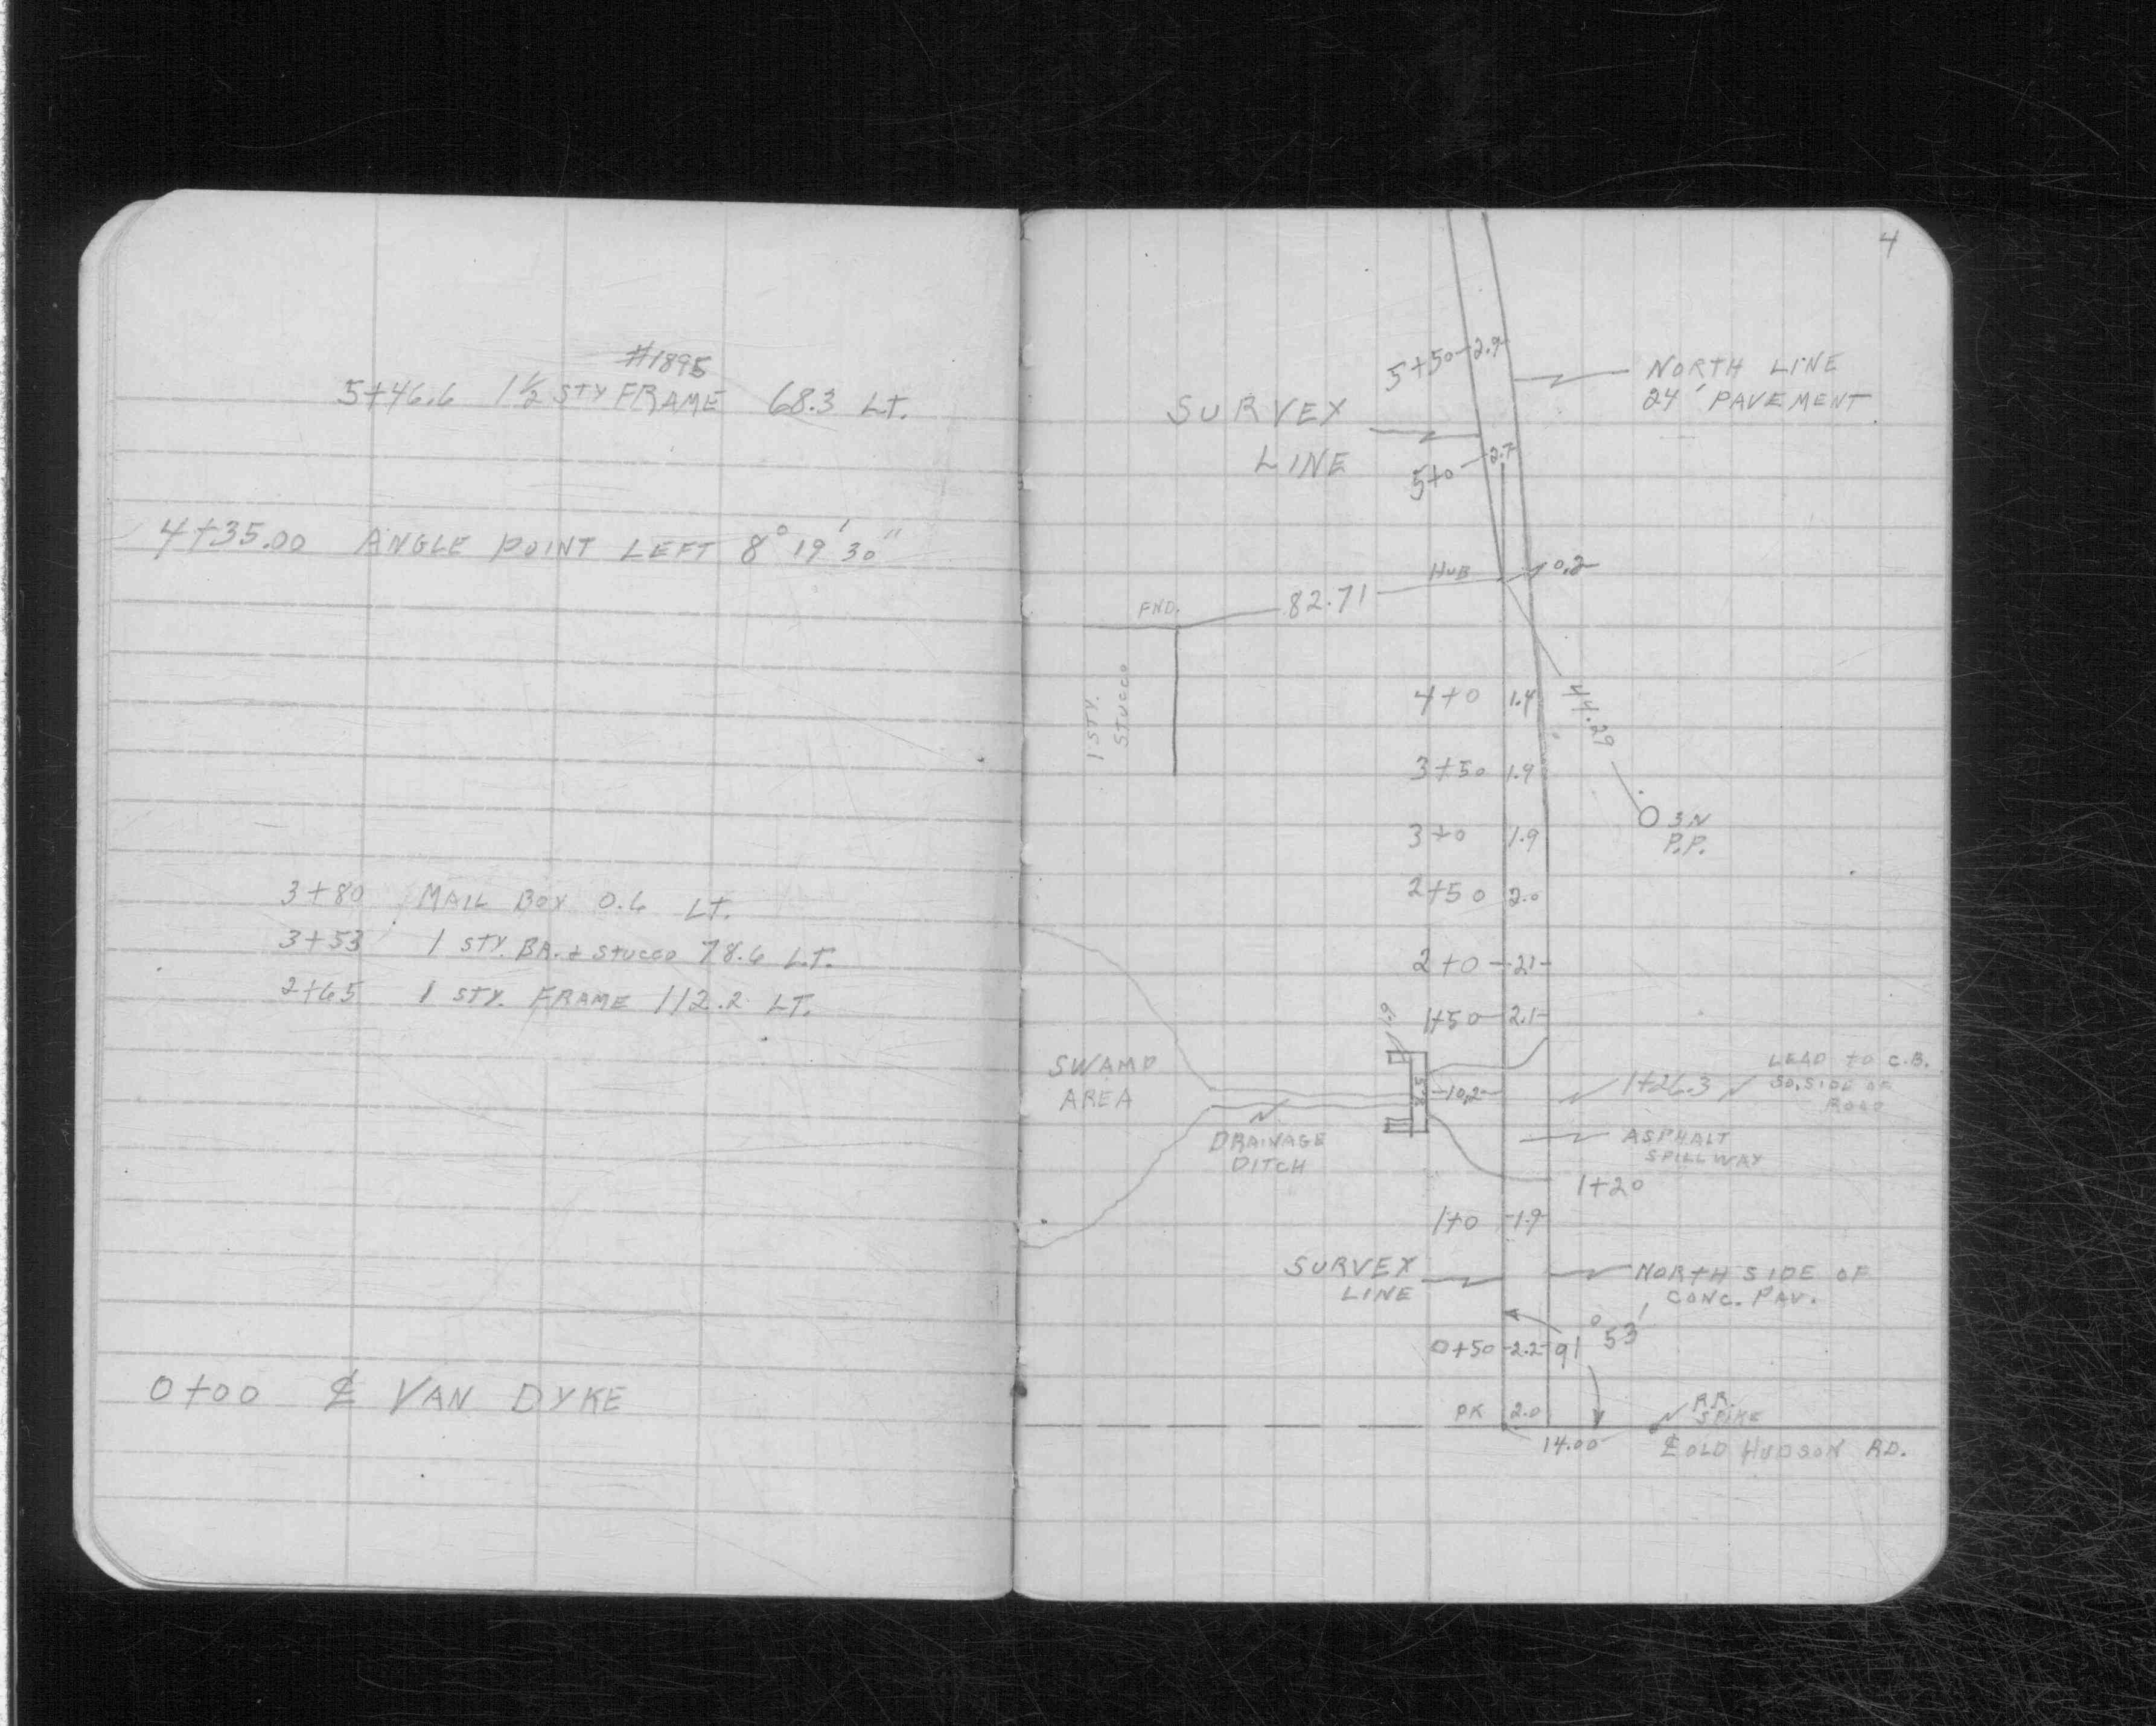 #1895
5+46.6 1½ STY FRAME 68.3 LT.
4+35.00 ANGLE POINT LEFT 8° 19' 30"
3+80 MAIL BOX 0.6 LT.
3+53 1 STY. BR. & STUCCO 78.6 LT.
2+65 1 STY. FRAME 112.2 LT.
0+00 ℄ VAN DYKE
4
5+50 2.9
NORTH LINE
24' PAVEMENT
SURVEY
LINE
5+0 2.7
HUB 0.2
FND. 82.71
1 STY.
STUCCO
4+0 1.4
44.29
3+50 1.9
3 N
P.P.
3+0 1.9
2+50 2.0
2+0 2.1
1+50 2.1
1.9
SWAMP
AREA
10.2
1+26.3
LEAD TO C.B.
SO. SIDE OF
ROAD
DRAINAGE
DITCH
ASPHALT
SPILLWAY
1+20
1+0 1.9
SURVEY
LINE
NORTH SIDE OF
CONC. PAV.
0+50 2.2 91° 53'
PK 2.0
R.R.
SPIKE
14.00
℄ OLD HUDSON RD.